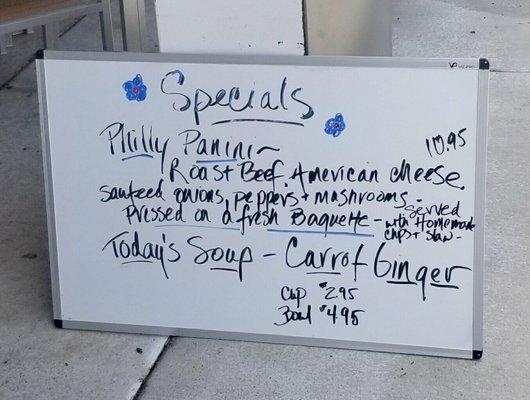 Specials
Philly Panini - 10.95
Roast Beef. American cheese.
sauteed onions, peppers + mushrooms.
Pressed on a fresh Baguette - served
with Homemade
chips + slaw -
Today's Soup - Carrot Ginger
Cup $2.95
Bowl $4.95